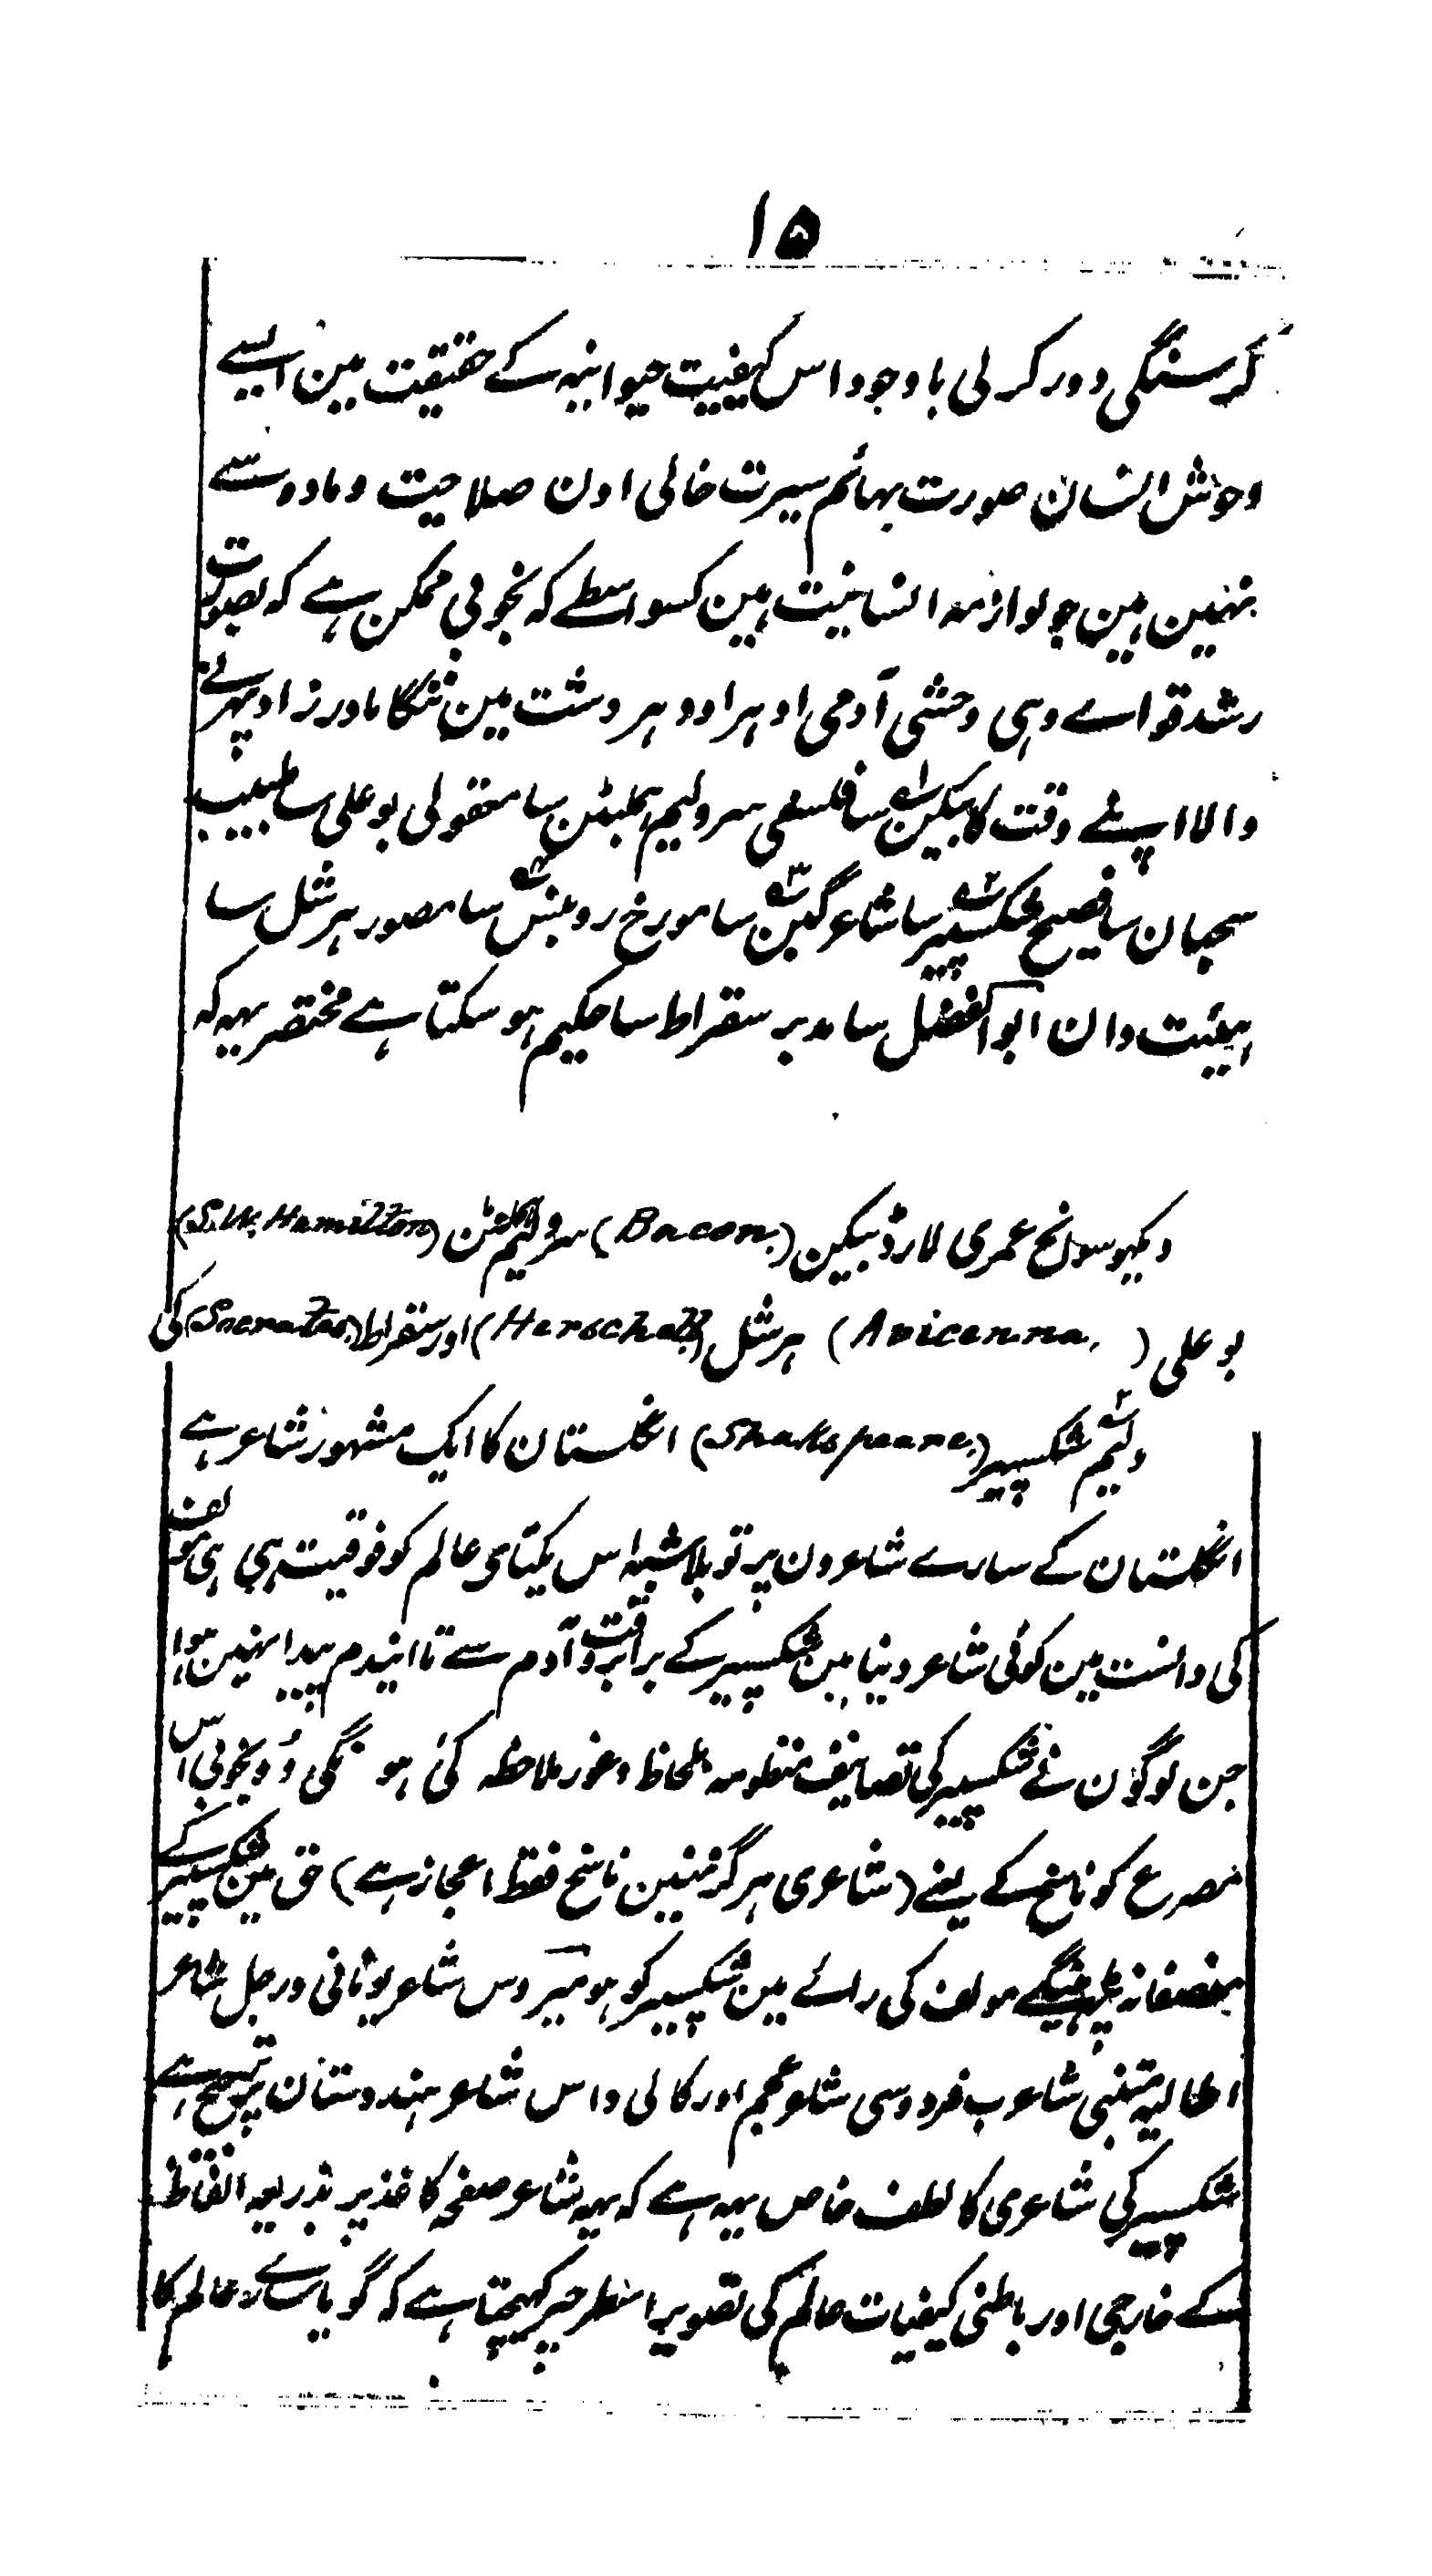 ۱۵
گرسنگی دور کر لی باوجود اس کیفیت حیوانیہ کے حقیقت مین ایسے
وحوش انسان صورت بہائم سیرت خالی اون صلاحیت و مادہ سے
نہین ہین جو لوازمہ انسانیت ہین کسواسطے کہ بخوبی ممکن ہے کہ بصورت
رشد قواے وہی وحشی آدمی اوہر اودہر دشت مین ننگا مادر زاد پہرنے
والا اپنے وقت کا بیکن سا فلسفی سر ولیم ہملٹن سا معقولی بوعلی سا طبیب
سحبان سا فصیح شکسپیر سا شاعر گبن سا مورخ روبنس سا مصور ہرشل سا
ہیئت دان ابو الفضل سا مدبر سقراط سا حکیم ہو سکتا ہے مختصر یہہ کہ
دیکہو سوانح عمری لارڈ بیکین (Bacon.) سر ولیم ہملٹن (S.W. Hamilton)
بو علی (Avicenna.) ہرشل (Herschell) اور سقراط (Socrates.) کی
۲ ولیم شکسپیر (Shakspeare.) انگلستان کا ایک مشہور شاعر ہے
انگلستان کے سارے شاعرون پر تو بلا شبہہ اس یکتای عالم کو فوقیت ہی ہی مولف
کی دانست مین کوئی شاعر دنیا مین شکسپیر کے برابر وقت آدم سے تا ایندم پیدا نہین ہوا
جن لوگون نے شکسپیر کی تصانیف منظومہ بلحاظ و غور ملاحظہ کی ہونگی وُہ بخوبی اس
مصرع کو ناسخ کے یعنے (شاعری ہرگز نہین ناسخ فقط اعجاز ہے) حق مین شکسپیر کے
منصفانہ پڑہینگے مولف کی رائے مین شکسپیر کو ہومیروس شاعر یونانی ورجل شاعر
اطالیہ متنبی شاعر عرب فردوسی شاعر عجم اور کالی داس شاعر ہندوستان پر ترجیح ہے
شکسپیر کی شاعری کا لطف خاص یہہ ہے کہ یہہ شاعر صفحہ کاغذ پر بذریعہ الفاظ
کے خارجی اور باطنی کیفیات عالم کی تصویر اسطرحپر کہیچتا ہے کہ گویا سارے عالم کا